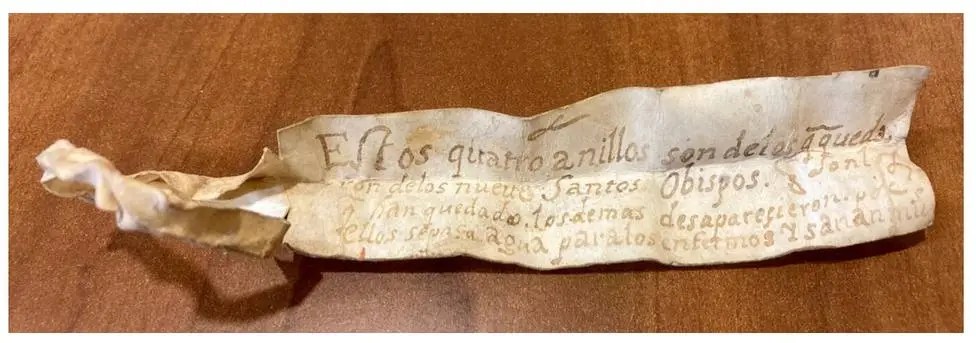 Estos quatro anillos son delos q̃ queda.
ron delos nueve Santos Obispos. q̃ son los
q̃ han quedado. los demas desaparescieron. por
ellos se pasa agua para los enfermos y sanan mu